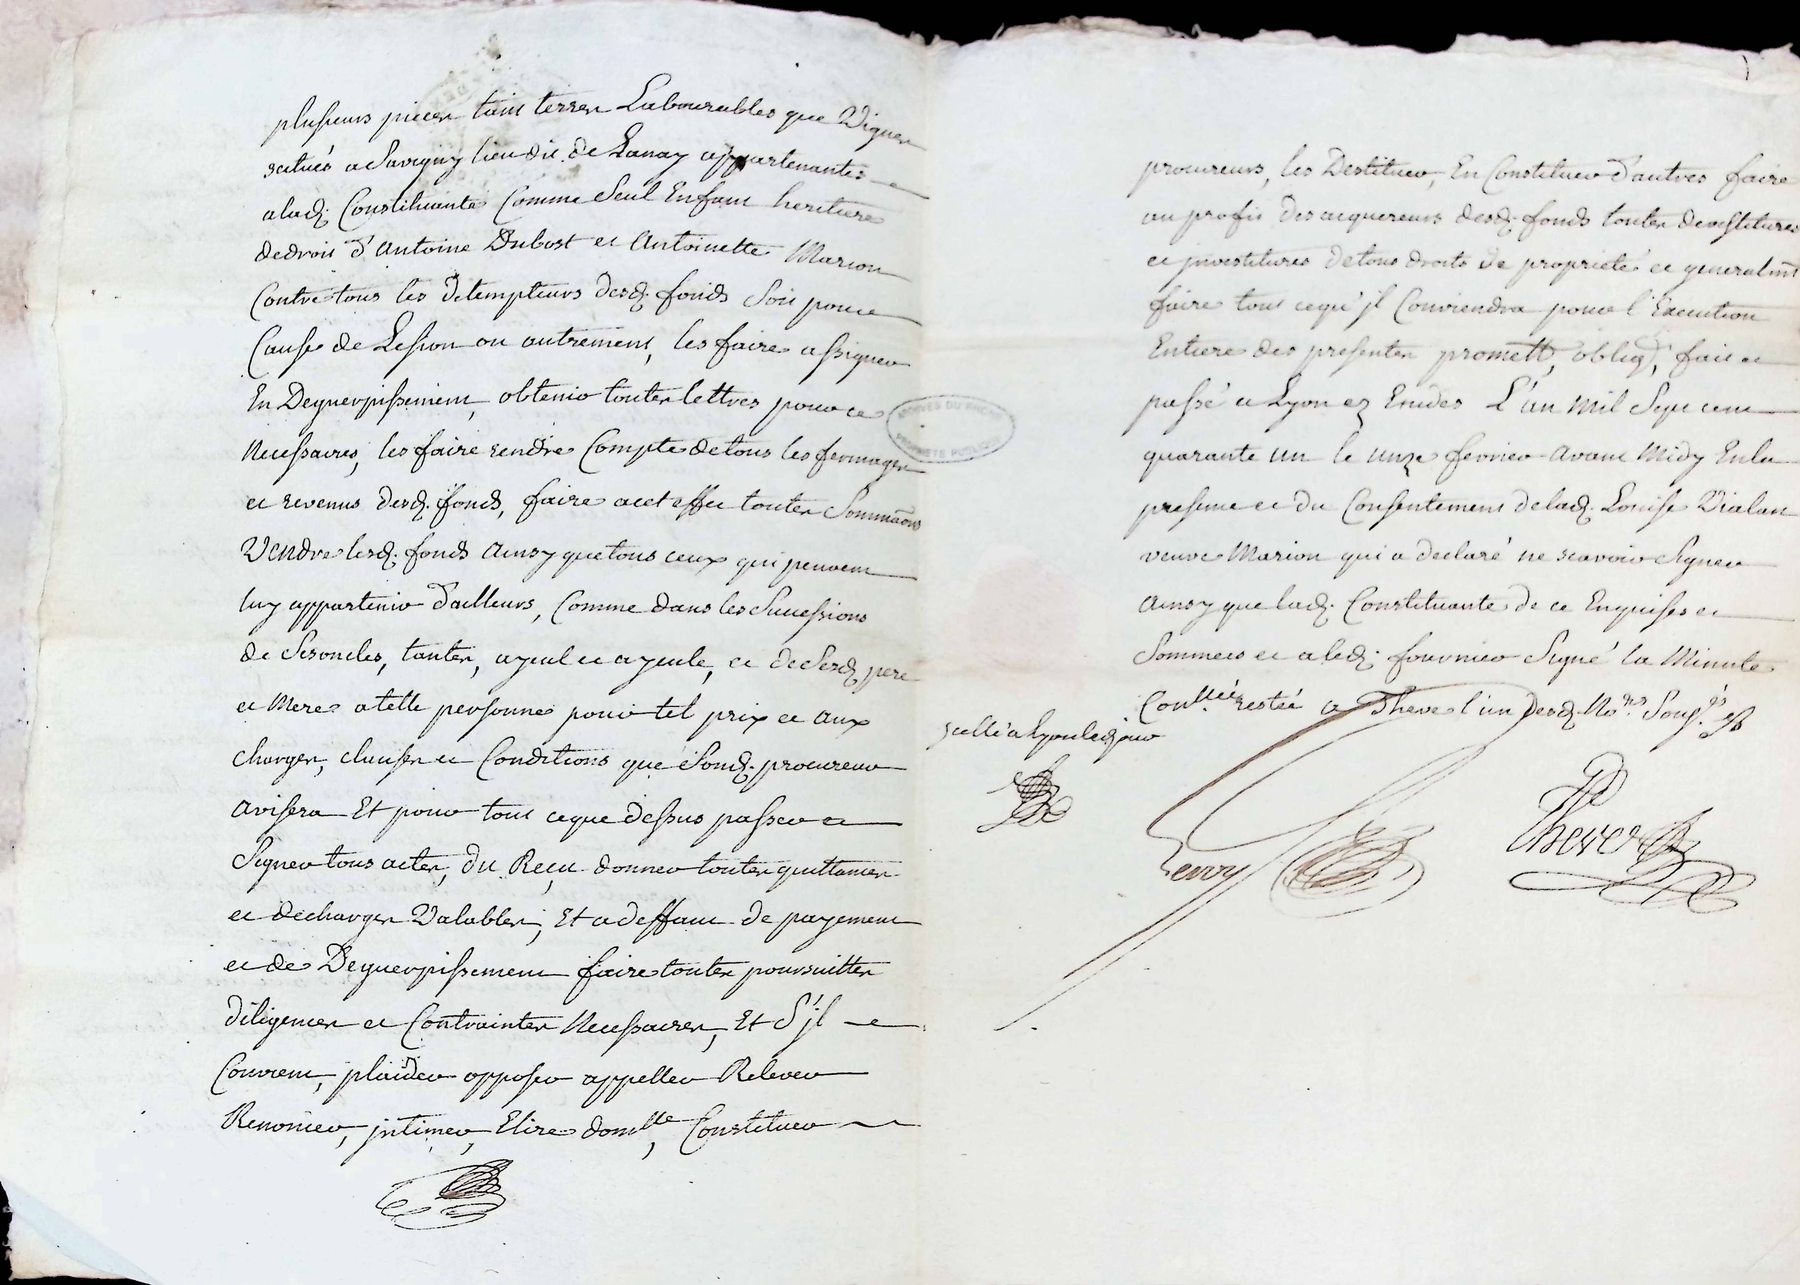 plusieurs pieces tant terres Labourables que Vignes
scitués a Savigny lieu dit de Lanay appartenantes
a lad. Constituante Comme Seul Enfant heritiere
de droit d'Antoine Dubost et Antoinette Marion
Contre tous les detempteurs desd. fonds Soit pour
Cause de Lesion ou autrement, les faire assigner
En Deguerpissement, obtenir toutes lettres pour ce
Necessaires, les faire rendre Compte de tous les fermages
et revenus desd. fonds, faire a cet effet toutes Sommaõns
Vendre lesd. fonds Ainsy que tous ceux qui peuvent
luy appartenir d'ailleurs, Comme dans les Successions
de Ses oncles, tantes, ayeul et ayeule, et de Sesd. pere
et Mere a telle personne pour tel prix et aux
charges, clauses et Conditions que Sond. procureur
avisera Et pour tout ce que dessus passer et
Signer tous actes, du Reçu donner toutes quittances
et decharges Valables, Et a deffaut de payement
et de Deguerpissement faire toutes poursuittes
diligences et Contraintes Necessaires, Et S'jl
Convient, plaider opposer appeller Relever
Renoncer, jntimer, Elire domlle, Constituer
ARCHIVES DU RHONE
PROPRIETE PUBLIQUE
procureurs, les Destituer, En Constituer d'autres faire
au profit des acquereurs desd. fonds toutes devestitures
et jnvestitures de tous droits de proprieté et generalmt
faire tout ce qu'jl Conviendra pour l'Execution
Entiere des presentes promett, oblig, fait et
passé a Lyon ez Etudes L'an Mil Sept cent
quarante un le unze fevrier avant Midy En la
presence et du Consentement de lad. Louise Vialan
veuve Marion qui a declaré ne scavoir Signer
Ainsy que lad. Constituante de ce Enquises et
Sommees et a led. fournier Signé la Minute
Conllée restée a Theve l'un desd. Nores Soussnés
scellé a Lyon led. jour
Thever